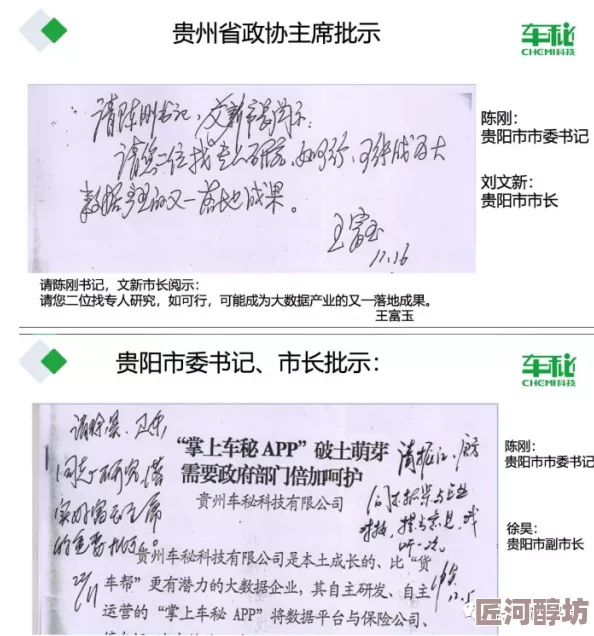 贵州省政协主席批示
车秘
CHEMI科技
请陈刚书记,文新市长阅示:
请您二位找专人研究,如可行,可能成为大
数据产业的又一落地成果。
王富玉
11.16
陈刚:
贵阳市市委书记
刘文新:
贵阳市市长
请陈刚书记,文新市长阅示:
请您二位找专人研究,如可行,可能成为大数据产业的又一落地成果。
王富玉
贵阳市委书记、市长批示:
车秘
CHEMI科技
同志研究落
实好富玉主席
的重要批示。
22/11
“掌上车秘 APP”破土萌芽
需要政府部门倍加呵护
贵州车秘科技有限公司
陈刚:
贵阳市市委书记
徐昊:
贵阳市副市长
贵州车秘科技有限公司是本土成长的、比“货
车帮”更有潜力的大数据企业，其自主研发、自主
运营的“掌上车秘 APP”将数据平台与保险公司、
12.5
匠河醇坊